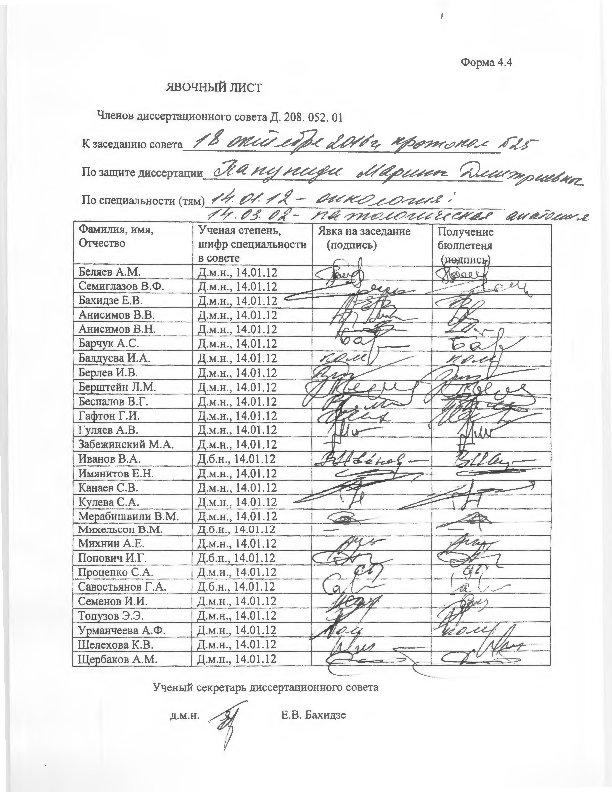 Форма 4.4
ЯВОЧНЫЙ ЛИСТ
Членов диссертационного совета Д. 208. 052. 01
К заседанию совета 18 октября 2016г протокол №25
По защите диссертации Папуниди Марины Дмитриевны
По специальности (тям) 14.01.12 - онкология;
14.03.02 - патологическая анатомия
Фамилия, имя, Отчество | Ученая степень, шифр специальности в совете | Явка на заседание (подпись) | Получение бюллетеня (подпись)
Беляев А.М. Д.м.н., 14.01.12
Семиглазов В.Ф. Д.м.н., 14.01.12
Бахидзе Е.В. Д.м.н., 14.01.12
Анисимов В.В. Д.м.н., 14.01.12
Анисимов В.Н. Д.м.н., 14.01.12
Барчук А.С. Д.м.н., 14.01.12
Балдуева И.А. Д.м.н., 14.01.12
Берлев И.В. Д.м.н., 14.01.12
Берштейн Л.М. Д.м.н., 14.01.12
Беспалов В.Г. Д.м.н., 14.01.12
Гафтон Г.И. Д.м.н., 14.01.12
Гуляев А.В. Д.м.н., 14.01.12
Забежинский М.А. Д.м.н., 14.01.12
Иванов В.А. Д.б.н., 14.01.12
Имянитов Е.Н. Д.м.н., 14.01.12
Канаев С.В. Д.м.н., 14.01.12
Кулева С.А. Д.м.н., 14.01.12
Мерабишвили В.М. Д.м.н., 14.01.12
Михельсон В.М. Д.б.н., 14.01.12
Михнин А.Е. Д.м.н., 14.01.12
Попович И.Г. Д.б.н., 14.01.12
Проценко С.А. Д.м.н., 14.01.12
Савостьянов Г.А. Д.б.н., 14.01.12
Семенов И.И. Д.м.н., 14.01.12
Топузов Э.Э. Д.м.н., 14.01.12
Урманчеева А.Ф. Д.м.н., 14.01.12
Шелехова К.В. Д.м.н., 14.01.12
Щербаков А.М. Д.м.н., 14.01.12
Ученый секретарь диссертационного совета
д.м.н. Е.В. Бахидзе